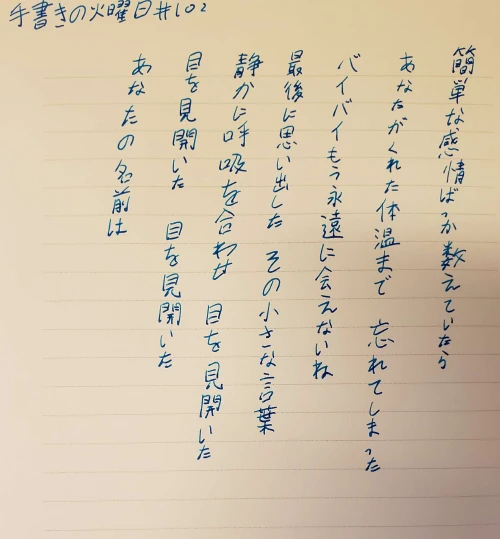 手書きの火曜日#102
簡単な感情ばっか数えていたら
あなたがくれた体温まで 忘れてしまった
バイバイもう永遠に会えないね
最後に思い出した その小さな言葉
静かに呼吸を合わせ 目を見開いた
目を見開いた 目を見開いた
あなたの名前は